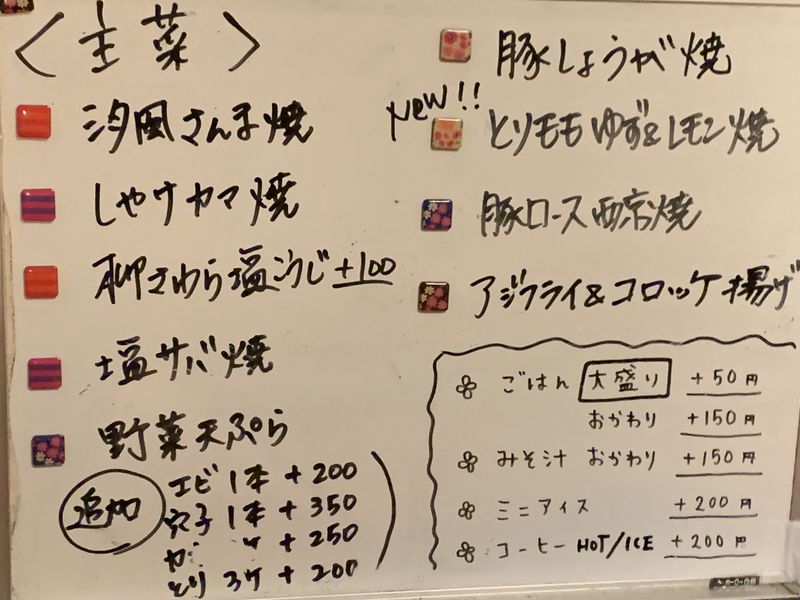 〈主菜〉
汐風さんま焼
しゃけカマ焼
さわら塩こうじ +100
塩サバ焼
野菜天ぷら
追加
エビ 1本 +200
穴子 1本 +350
+250
とり 3ケ +200
豚しょうが焼
New!!
とりモモゆず&レモン焼
豚ロース西京焼
アジフライ&コロッケ揚げ
ごはん 大盛り +50円
おかわり +150円
みそ汁 おかわり +150円
ミニアイス +200円
コーヒー HOT/ICE +200円